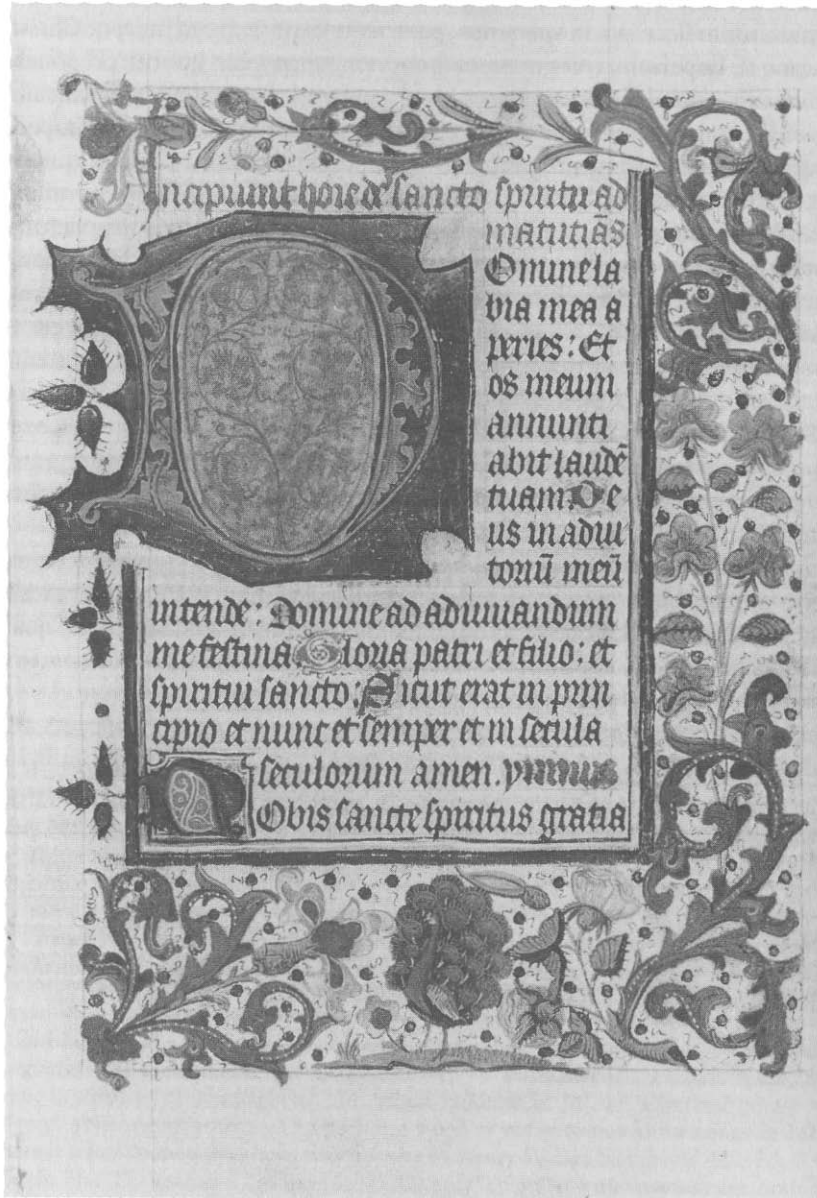 Incipiunt hore de sancto spiritu ad
matutiās
Omine la
bia mea a
peries: Et
os meum
annunti
abit laudē
tuam. De
us in adiu
toriū meū
intende: Domine ad adiuuandum
me festina Gloria patri et filio: et
spiritui sancto. Sicut erat in prin
cipio et nunc et semper et in secula
seculorum amen. ymnus
Obis sancte spiritus gratia